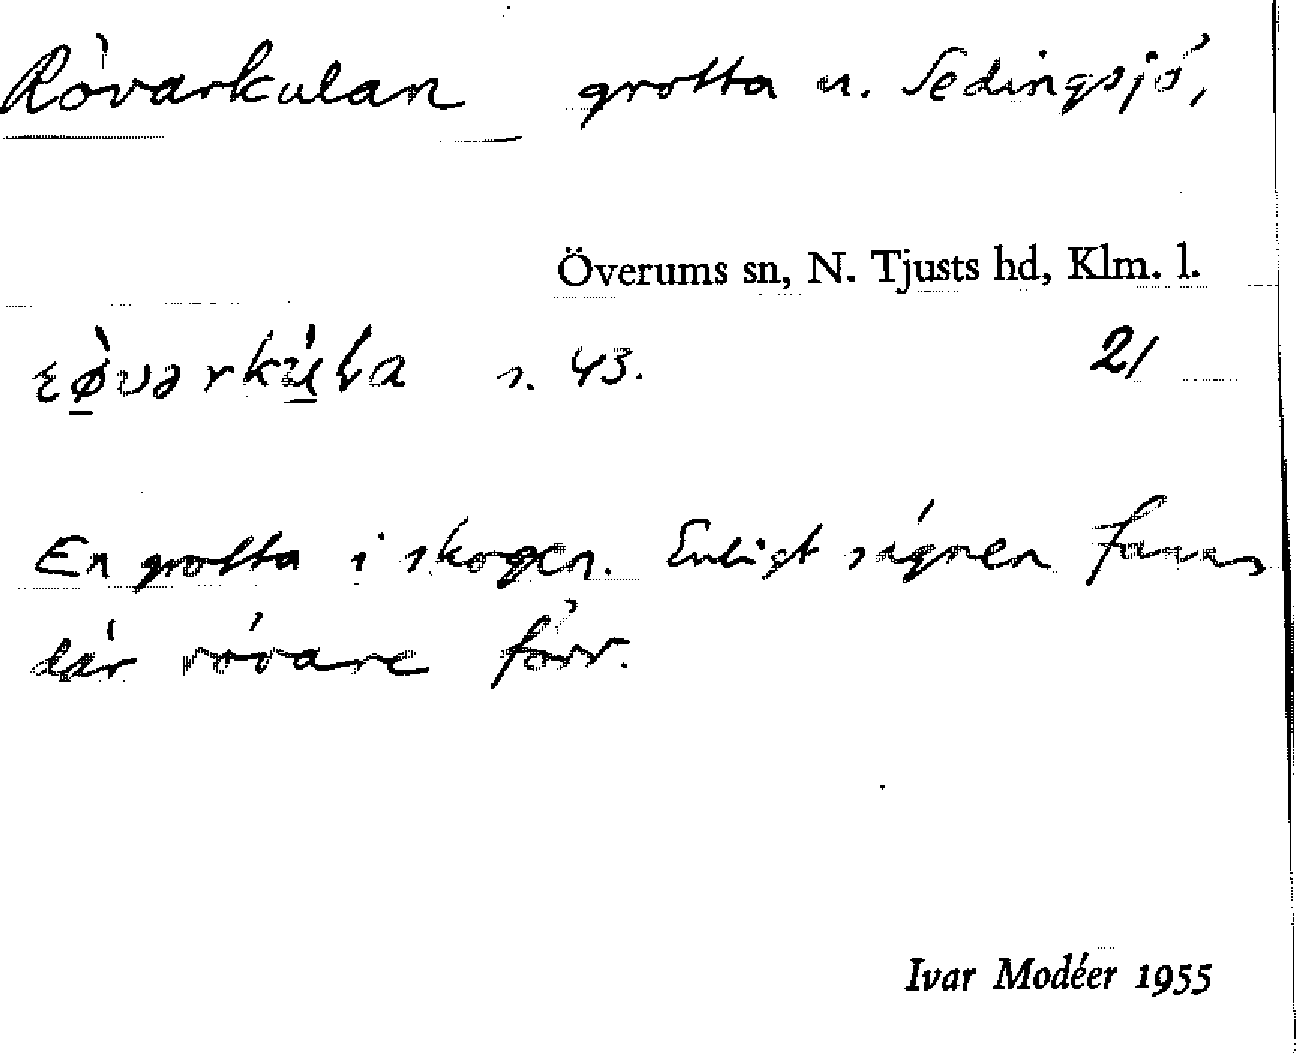 Rövarkulan grotta u. Sedingsjö,
Överums sn, N. Tjusts hd, Klm. l.
s. 43. 21
En grotta i skogen. Enligt sägnen fanns
där rövare förr.
Ivar Modéer 1955